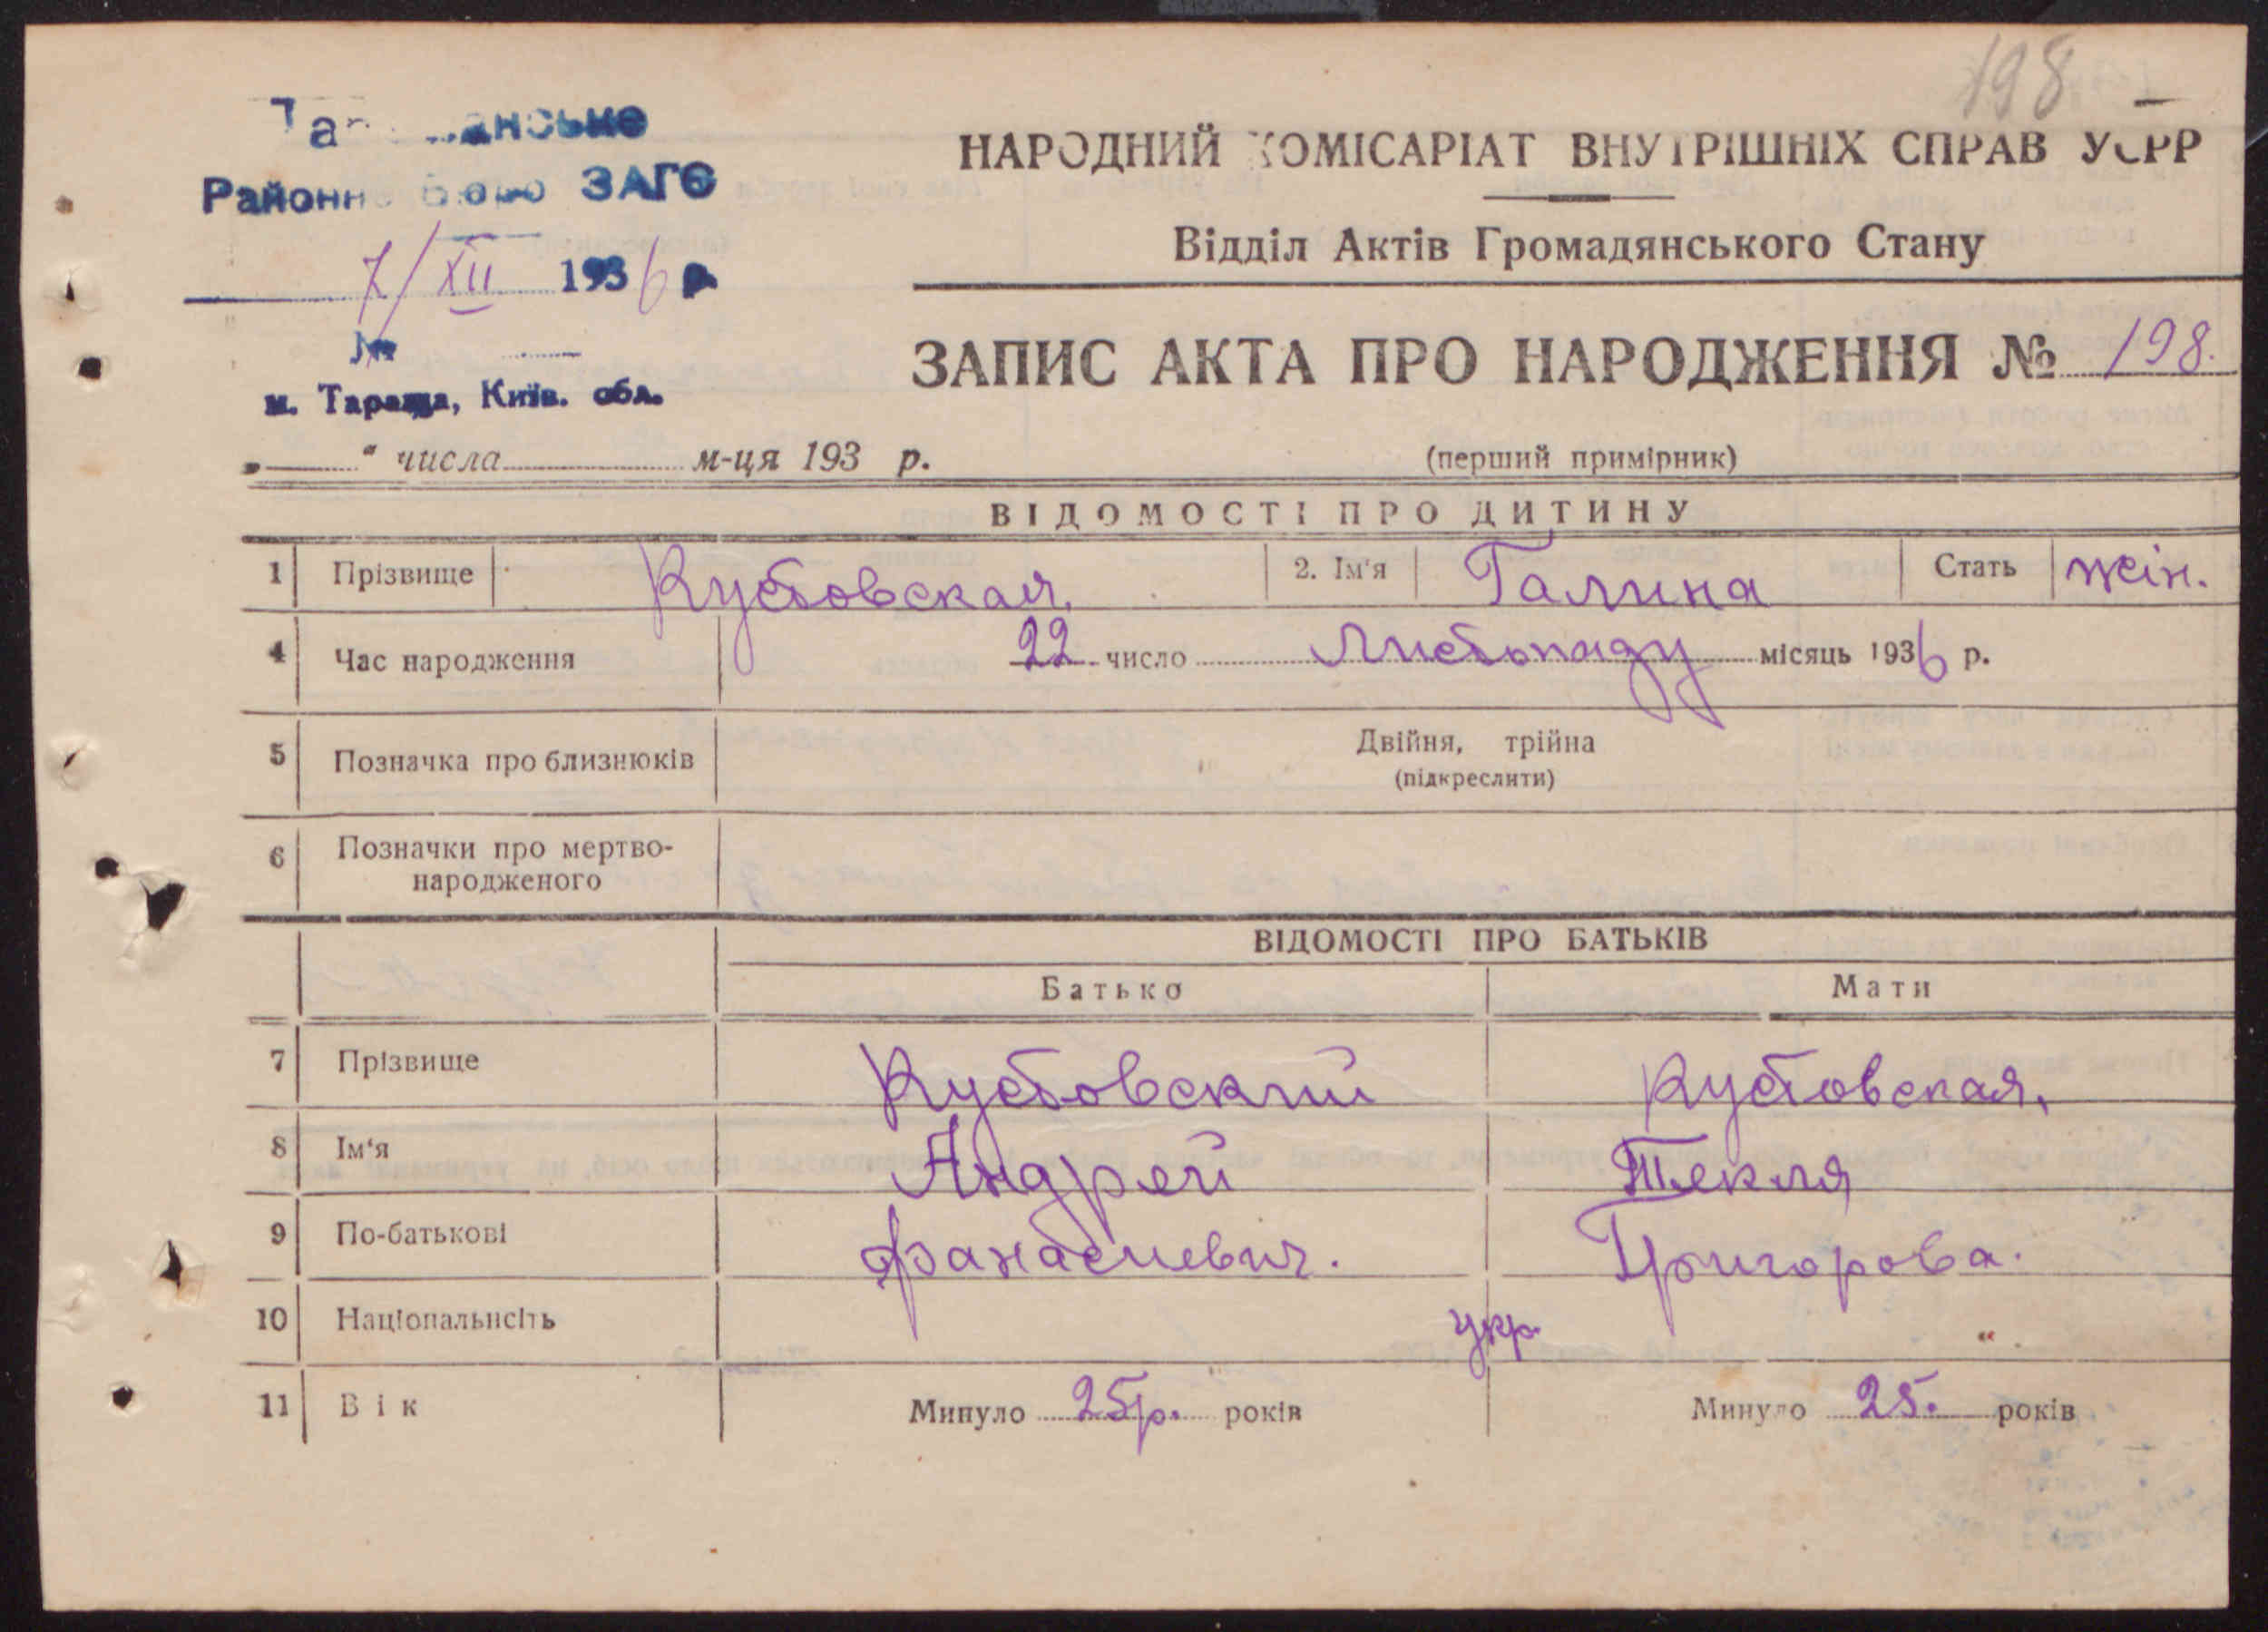 198
Районне бюро ЗАГС
7/XII 1936 р.
№
м. Тараща, Київ. обл.
НАРОДНИЙ КОМІСАРІАТ ВНУТРІШНІХ СПРАВ УСРР
Відділ Актів Громадянського Стану
ЗАПИС АКТА ПРО НАРОДЖЕННЯ № 198.
„ “ числа м-ця 193 р.
(перший примірник)
ВІДОМОСТІ ПРО ДИТИНУ
1 Прізвище Кустовская. 2. Ім'я Галина Стать жін.
4 Час народження 22 число Листопаду місяць 1936 р.
5 Позначка про близнюків Двійня, трійна
(підкреслити)
6 Позначки про мертво-
народженого
ВІДОМОСТІ ПРО БАТЬКІВ
Батько Мати
7 Прізвище Кустовский Кустовская.
8 Ім'я Андрей Текля
9 По-батькові Фанасиевич. Григорова.
10 Національнсіть укр. "
11 Вік Минуло 25р. років Минуло 25. років